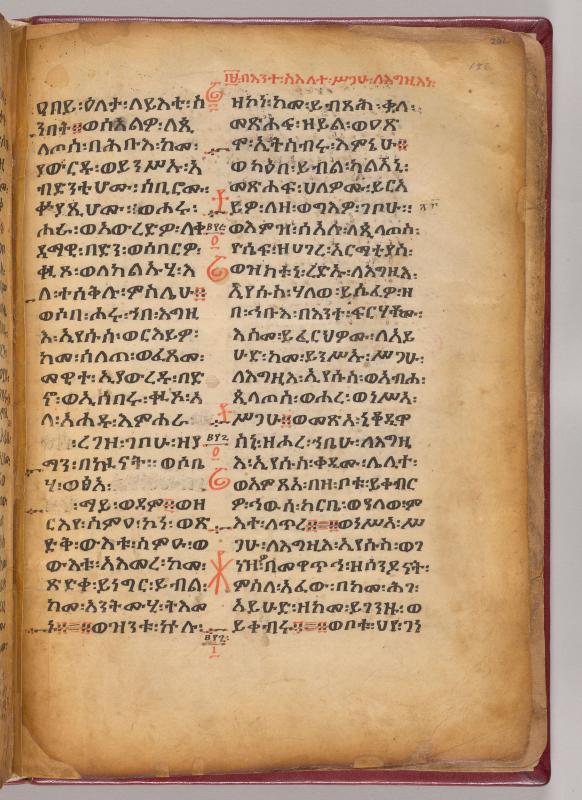 ፲፱፡በእንተ፡ስእለተ፡ሥጋሁ፡ለእግዚእነ፡
ዐበይ፡ዕለታ፡ለይእቲ፡ሰ
ንበት፡፡ወሰአልዎ፡ለጲ
ላጦስ፡በሕቡእ፡ከመ፡
ያውርዱ፡ወይንሥኡ፡አ
ብድንቲሆሙ፡ሰቢሮሙ፡
ቍያጺሆሙ፡፡ወሐሩ፡
ሐራ፡ወአውረድዎ፡ለቀ
ዳማዊ፡በድን፡ወሰበርዎ፡
ቍጾ፡ወለካልኡሂ፡እ
ለ፡ተሰቅሉ፡ምስሌሁ፡፡
ወሶበ፡ሐሩ፡ኀበ፡እግዚ
እ፡ኢየሱስ፡ወርእይዎ፡
ከመ፡ሰለጠ፡ወፈጸመ፡
መዊተ፡ኢያውረዱ፡በድ
ኖ፡ወኢሰበሩ፡ቍጾ፡አ
ላ፡አሐዱ፡እምሐራ
፡ረገዞ፡ገቦሁ፡ዘየ
ማን፡በኲናት፡፡ወሶቤ
ሃ፡ወፅአ፡
፡ማይ፡ወደም፡፡ወዘ
ርእየ፡ስምዐ፡ኮነ፡ወጽ
ድቅ፡ውእቱ፡ስምዑ፡ወ
ውእቱ፡አእመረ፡ከመ፡
ጽድቀ፡ይነግር፡ይብል፡
ከመ፡አንትሙሂ፡ትእመ
ኑ፡፡ወዝንቱ፡ኵሉ፡
ዘኮነ፡ከመ፡ይብጻሕ፡ቃለ፡
መጽሐፍ፡ዘይል፡ወዐጽ
ሞ፡ኢትስብሩ፡እምኔሁ፡፡
ወካዕበ፡ይብል፡ካልእኒ፡
መጽሐፍ፡ሀለዎሙ፡ይርአ
ይዎ፡ለዘ፡ወግእዎ፡ገቦሁ፡፡
ወእምዝ፡ሰአሉ፡ለጲላጦስ፡
ዮሴፍ፡ዘሀገረ፡አርማትያስ፡
ወዝከቱኒ፡ረድኡ፡ለእግዚእ፡
ኢየሱስ፡ሃለወ፡ይሴፈዎ፡ዘ
በ፡ኅቡእ፡በእንተ፡ፍርሃቶሙ፡
እስመ፡ይፈርህዎሙ፡ለአይ
ሁድ፡ከመ፡ይንሥኡ፡ሥጋሁ፡
ለእግዚእ፡ኢየሱስ፡ወአብሐ፡
ጲላጦስ፡ወሐረ፡ወነሥአ፡
ሥጋሁ፡፡ወመጽአ፡ኒቆዲዋ
ስኒ፡ዘሖረ፡ኀቤሁ፡ለእግዚ
እ፡ኢየሱስ፡ቀዲሙ፡ሌሊተ፡
ወአምጽአ፡በዘ፡ቦቱ፡ይቀብር
ዎ፡ኅዉሰ፡ከርቤ፡ወዓለወ፡ም
እተ፡ለጥረ፡፡ወነሥአ፡ሥ
ጋሁ፡ለእግዚእ፡ኢየሱስ፡ወገ
ነዝዎ፡በመዋጥሓ፡ዘሰንዶናት፡
ምስለ፡አፈው፡በከመ፡ሕገ፡
አይሁድ፡ዘከመ፡ይገንዙ፡ወ
ይቀብሩ፡፡ወቦቱ፡ህየ፡ገነ